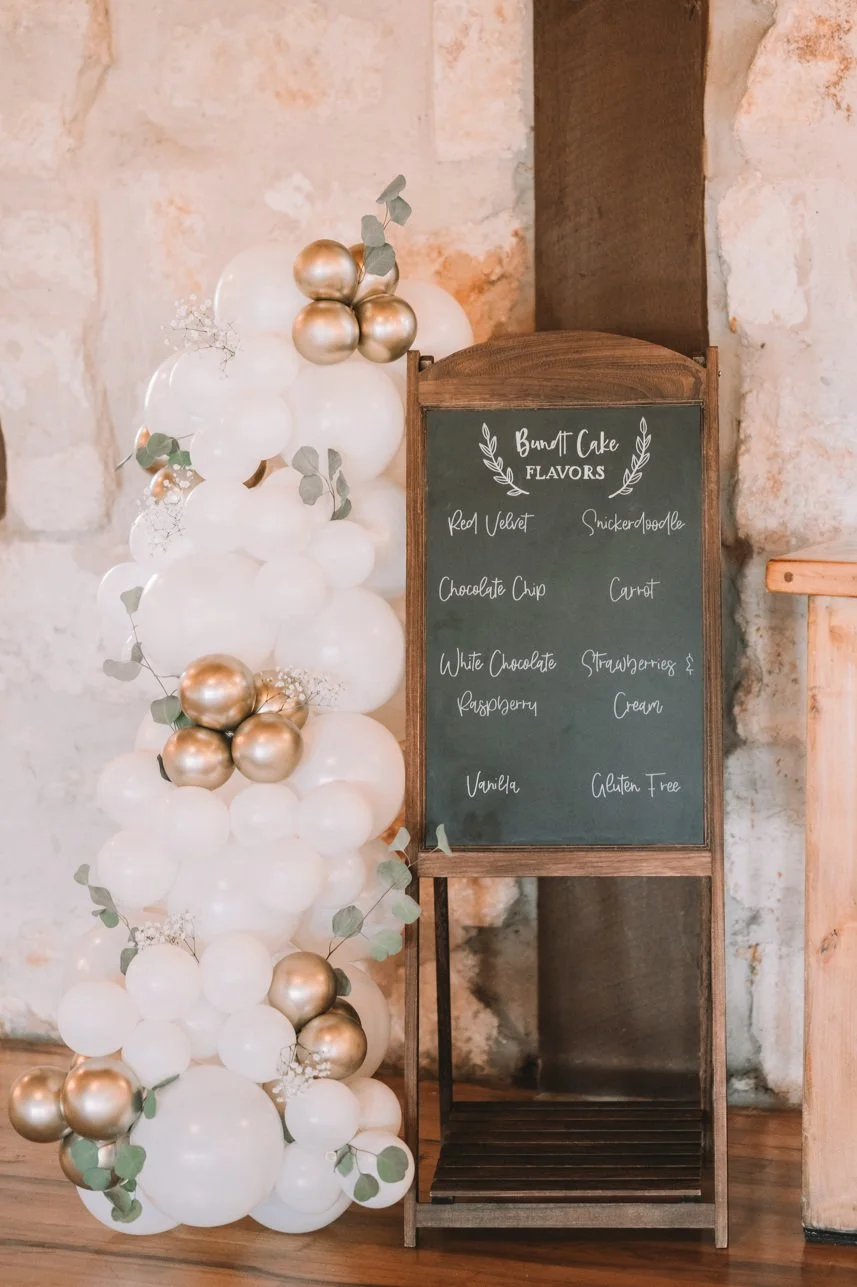 Bundt Cake
FLAVORS
Red Velvet
Snickerdoodle
Chocolate Chip
Carrot
White Chocolate
Raspberry
Strawberries &
Cream
Vanilla
Gluten Free